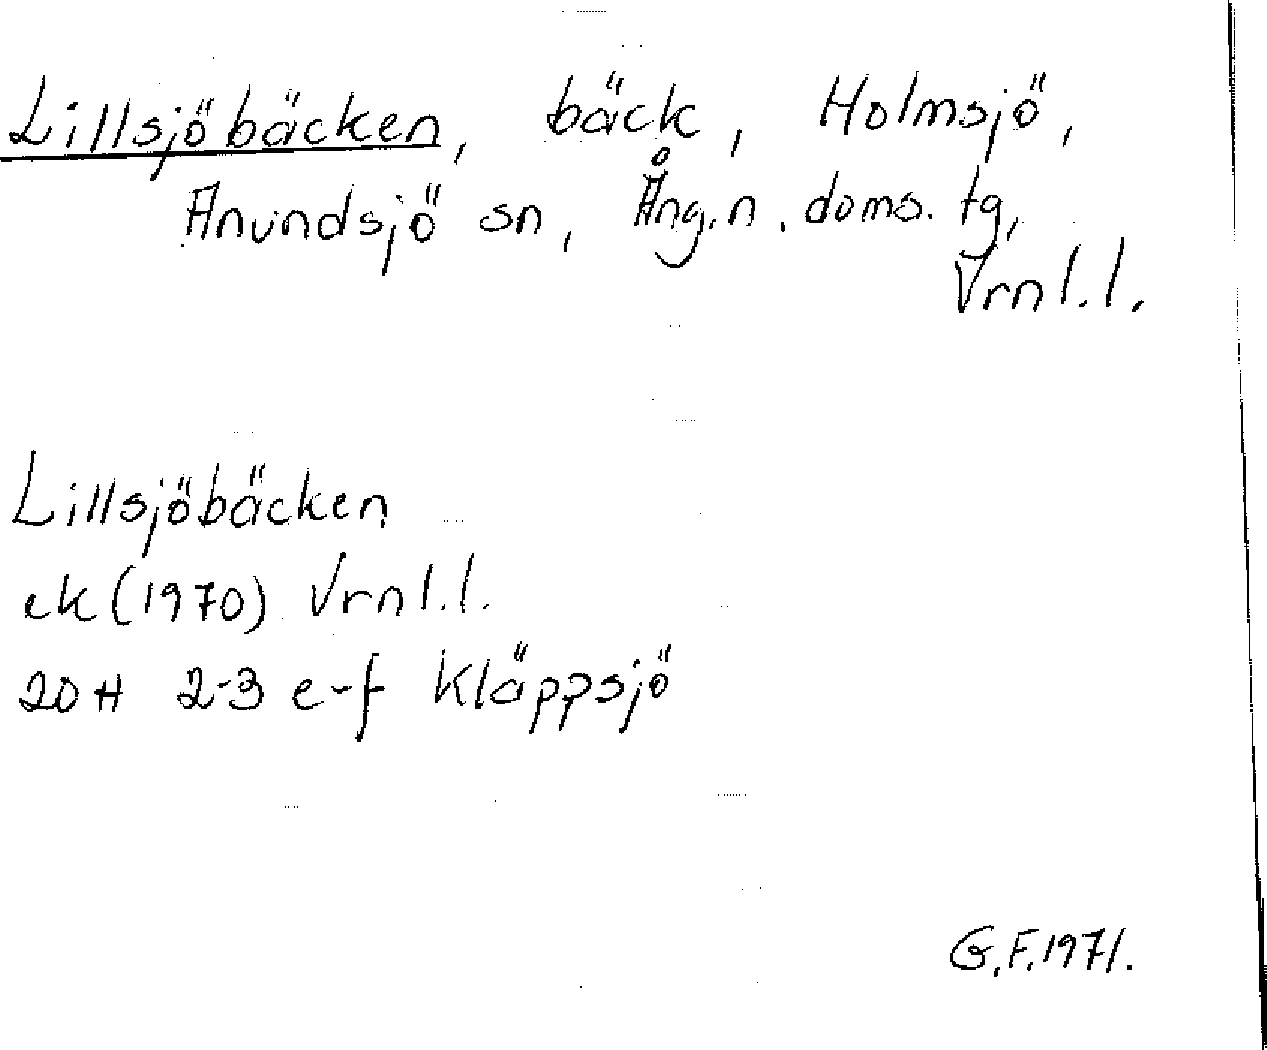 Lillsjöbäcken, bäck, Holmsjö,
Anundsjö sn, Ång.n. doms. tg,
Vrnl.l.
Lillsjöbäcken
ek (1970) Vrnl.l.
20H 2-3 e-f Kläppsjö
G.F. 1971.